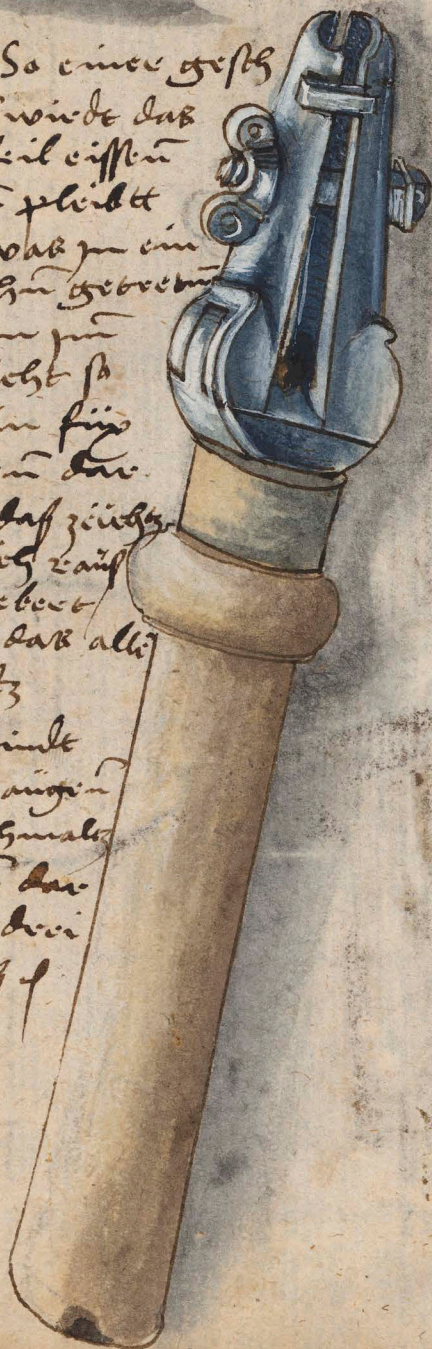 So einer gesch
wirdt das
eil eissen̄
pleibtt
was jn ein
hn̄ getretn̄
n jm̄
eht so
n für
en̄ dar
das zeucht
ch rauß
ebert
das alle
tz
indt
augen̄
hmaltz
dar
drei